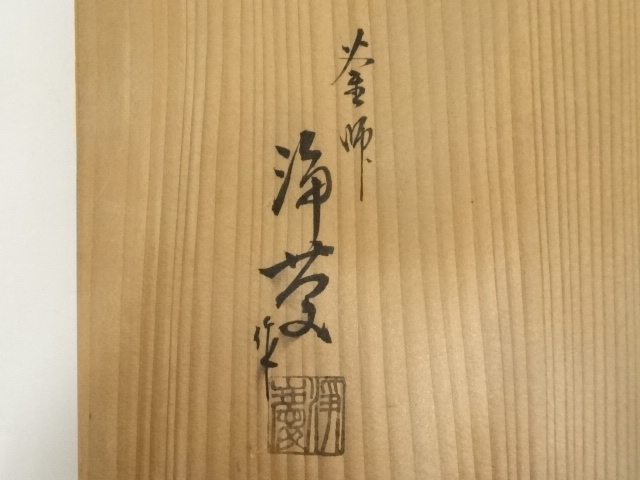 釜師
浄慶
作
浄慶